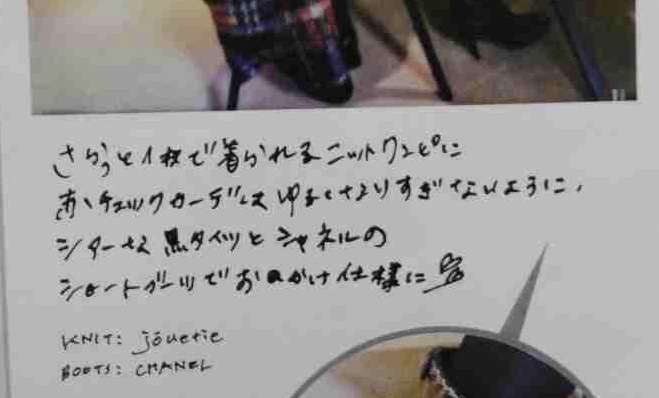 さらっと1枚で着られるニットワンピに
赤いチェックカーデはゆるくなりすぎないように、
シアーな黒タイツとシャネルの
ショートブーツでおでかけ仕様に
KNIT: jouetie
BOOTS: CHANEL